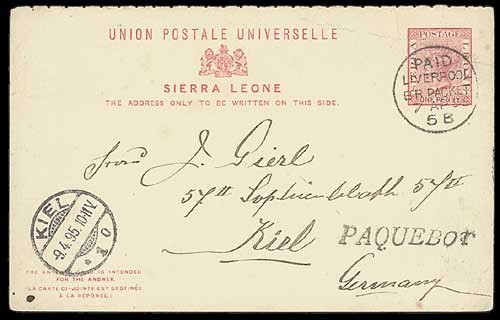 UNION POSTALE UNIVERSELLE
SIERRA LEONE
THE ADDRESS ONLY TO BE WRITTEN ON THIS SIDE.
POSTAGE
ONE PENNY
PAID
LIVERPOOL
BR. PACKET
AP
5B
Herrn J. Gierl
57II 57II
Kiel
PAQUEBOT
Germany
KIEL
9.4.95.10-11V.
* 1 0
THE ANNEXED CARD IS INTENDED
FOR THE ANSWER.
(LA CARTE CI-JOINTE EST DESTINÉE
À LA RÉPONSE.)